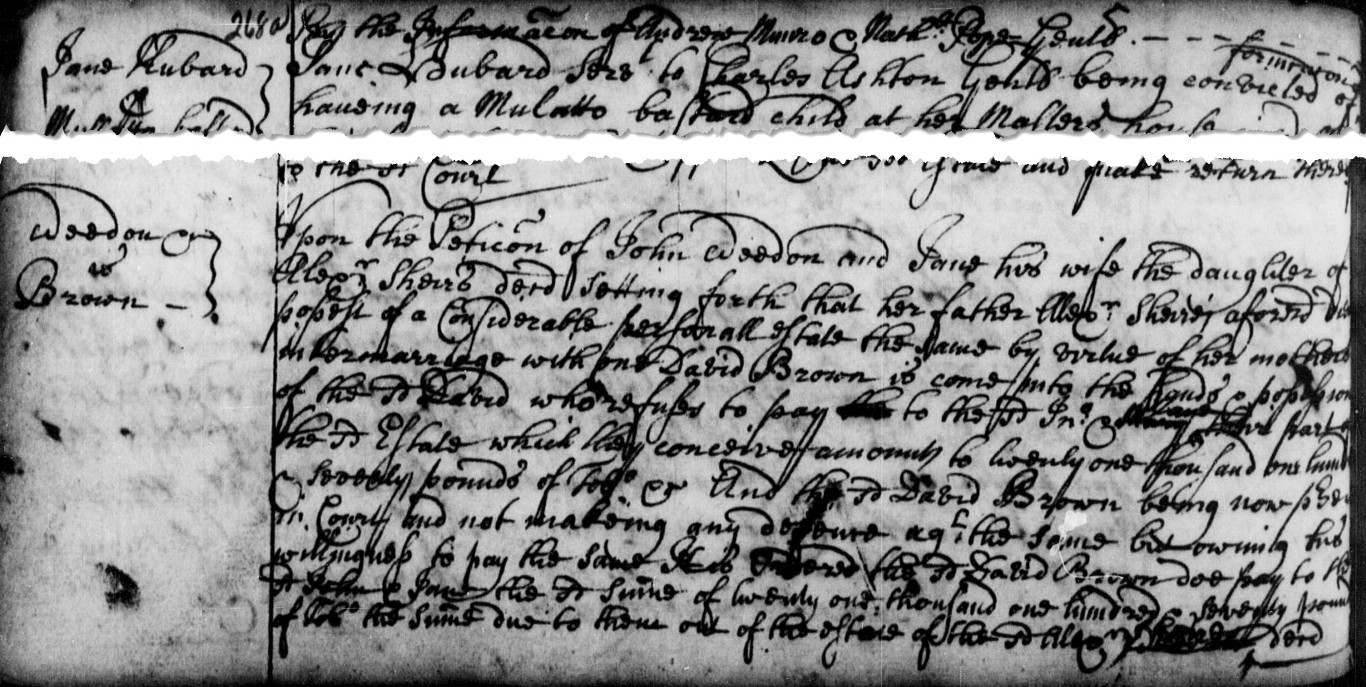 268a
Jane Hubard
Mullatto bastard
By the Informacon of Andrew Munro & Nathll Pope Gents
Jane Hubard Servt to Charles Ashton Gentl being convicted of
haveing a Mulatto bastard child at her Masters house
to the sd Court and make return
Weedon &
vs
Brown
Upon the Peticon of John Weedon and Jane his wife the daughter of
Alexr Sherrs decd Setting forth that her father Alexr Sherrs aforesd
possest of a Considerable personall estate the same by virtue of her mothers
intermarriage with one David Brown is come into the hands & possession
of the sd David who refuses to pay to the sd Jno & part
the sd Estate which they conceive amounts to twenty one thousand one hund
& seventy pounds of Tobo &c And the sd David Brown being now
in Court and not makeing any defence agt the same but owning his
willingness to pay the same It is Ordered the sd David Brown doe pay to the
sd John & Jane the sd sume of twenty one thousand one hundred & seventy
of Tobo the sume due to them out of the estate of the sd Alexr decd